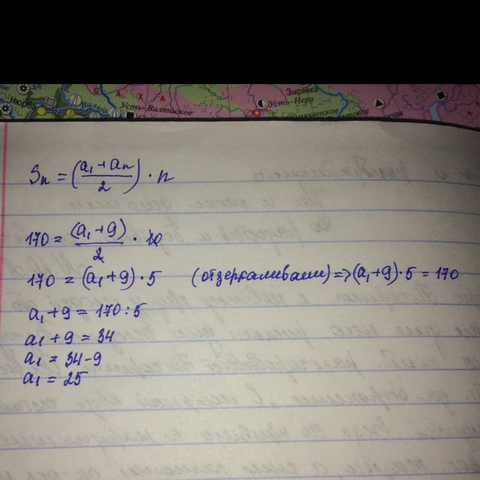 САХА
Усть-Вилюйское
Зырянка
Усть-Нера
Sn = (a1 + an / 2) · n
170 = (a1 + 9) / 2 · 10
170 = (a1 + 9) · 5 (отзеркаливаем) => (a1 + 9) · 5 = 170
a1 + 9 = 170 : 5
a1 + 9 = 34
a1 = 34 - 9
a1 = 25